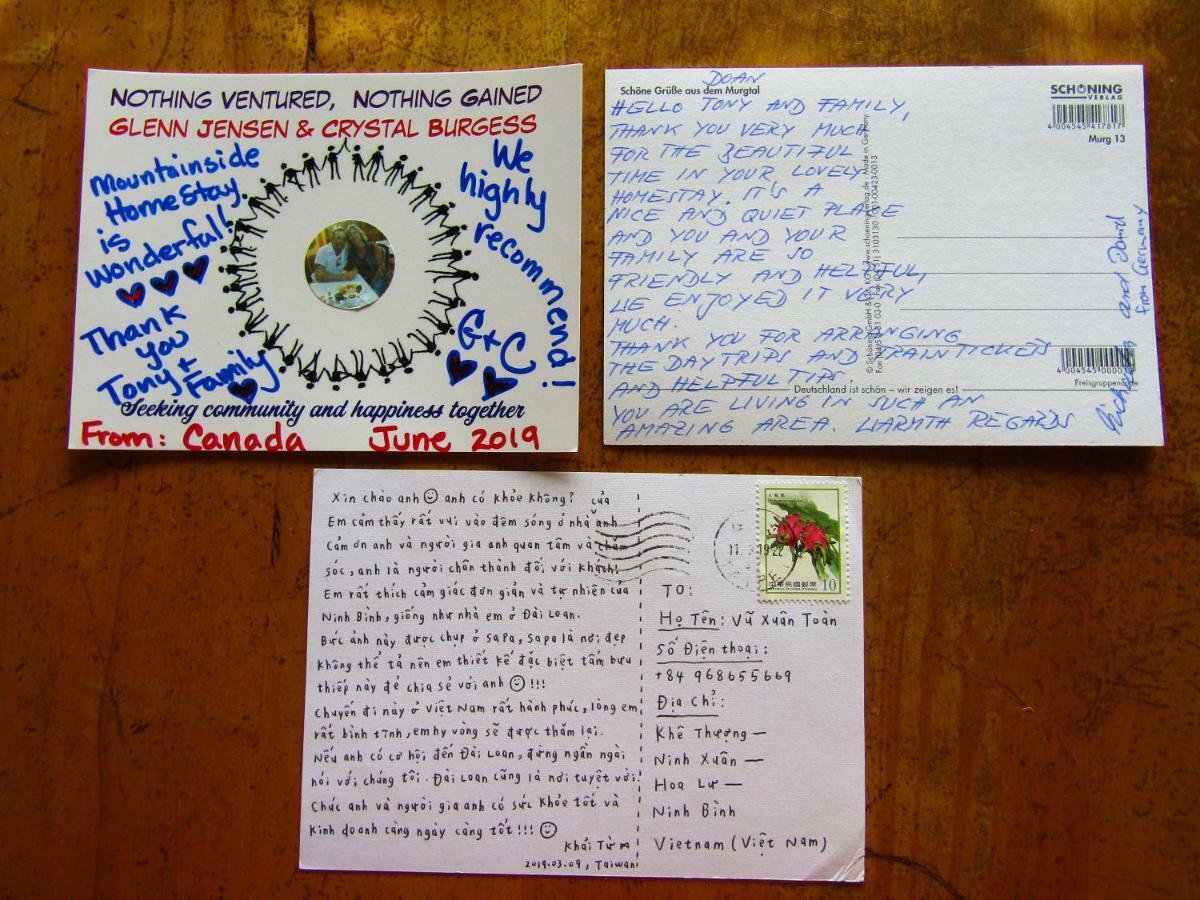 NOTHING VENTURED, NOTHING GAINED
GLENN JENSEN & CRYSTAL BURGESS
Mountainside
HomeStay
is
wonderful!
Thank
you
Tony +
Family
We
highly
recommend!
G+C
Seeking community and happiness together
From: Canada June 2019
Schöne Grüße aus dem Murgtal
DOAN
HELLO TONY AND FAMILY,
THANK YOU VERY MUCH
FOR THE BEAUTIFUL
TIME IN YOUR LOVELY
HOMESTAY. IT'S A
NICE AND QUIET PLACE
AND YOU AND YOUR
FAMILY ARE SO
FRIENDLY AND HELPFUL,
WE ENJOYED IT VERY
MUCH.
THANK YOU FOR ARRANGING
THE DAYTRIPS AND TRAINTICKETS
AND HELPFUL TIPS.
YOU ARE LIVING IN SUCH AN
AMAZING AREA. WARMTH REGARDS
and David
from Germany
Deutschland ist schön – wir zeigen es!
SCHÖNING
VERLAG
4 004545 417817
Murg 13
Made in Germany
Xin chào anh anh có khỏe không? của
Em cảm thấy rất vui vào đêm sóng ở nhà anh
Cảm ơn anh và người gia anh quan tâm và chăm
sóc, anh là người chân thành đối với khách!
Em rất thích cảm giác đơn giản và tự nhiên của
Ninh Bình, giống như nhà em ở Đài Loan.
Bức ảnh này được chụp ở sapa, sapa là nơi đẹp
không thể tả nên em thiết kế đặc biệt tấm bưu
thiếp này để chia sẻ với anh !!!
Chuyến đi này ở Việt Nam rất hành phúc, lòng em
rất bình tĩnh, em hy vòng sẽ được thăm lại.
Nếu anh có cơ hội đến Đài Loan, đừng ngần ngài
nói với chúng tôi. Đài Loan cũng là nơi tuyệt vời!
Chúc anh và người gia anh có sức khỏe tốt và
kinh doanh càng ngày càng tốt!!!
Khải Từ
2019.03.09, Taiwan
中華民國郵票
10
TO:
Họ Tên: Vũ Xuân Toàn
Số Điện thoại:
+84 968655669
Địa chỉ:
Khê Thượng —
Ninh Xuân —
Hoa Lư —
Ninh Bình
Vietnam (Việt Nam)